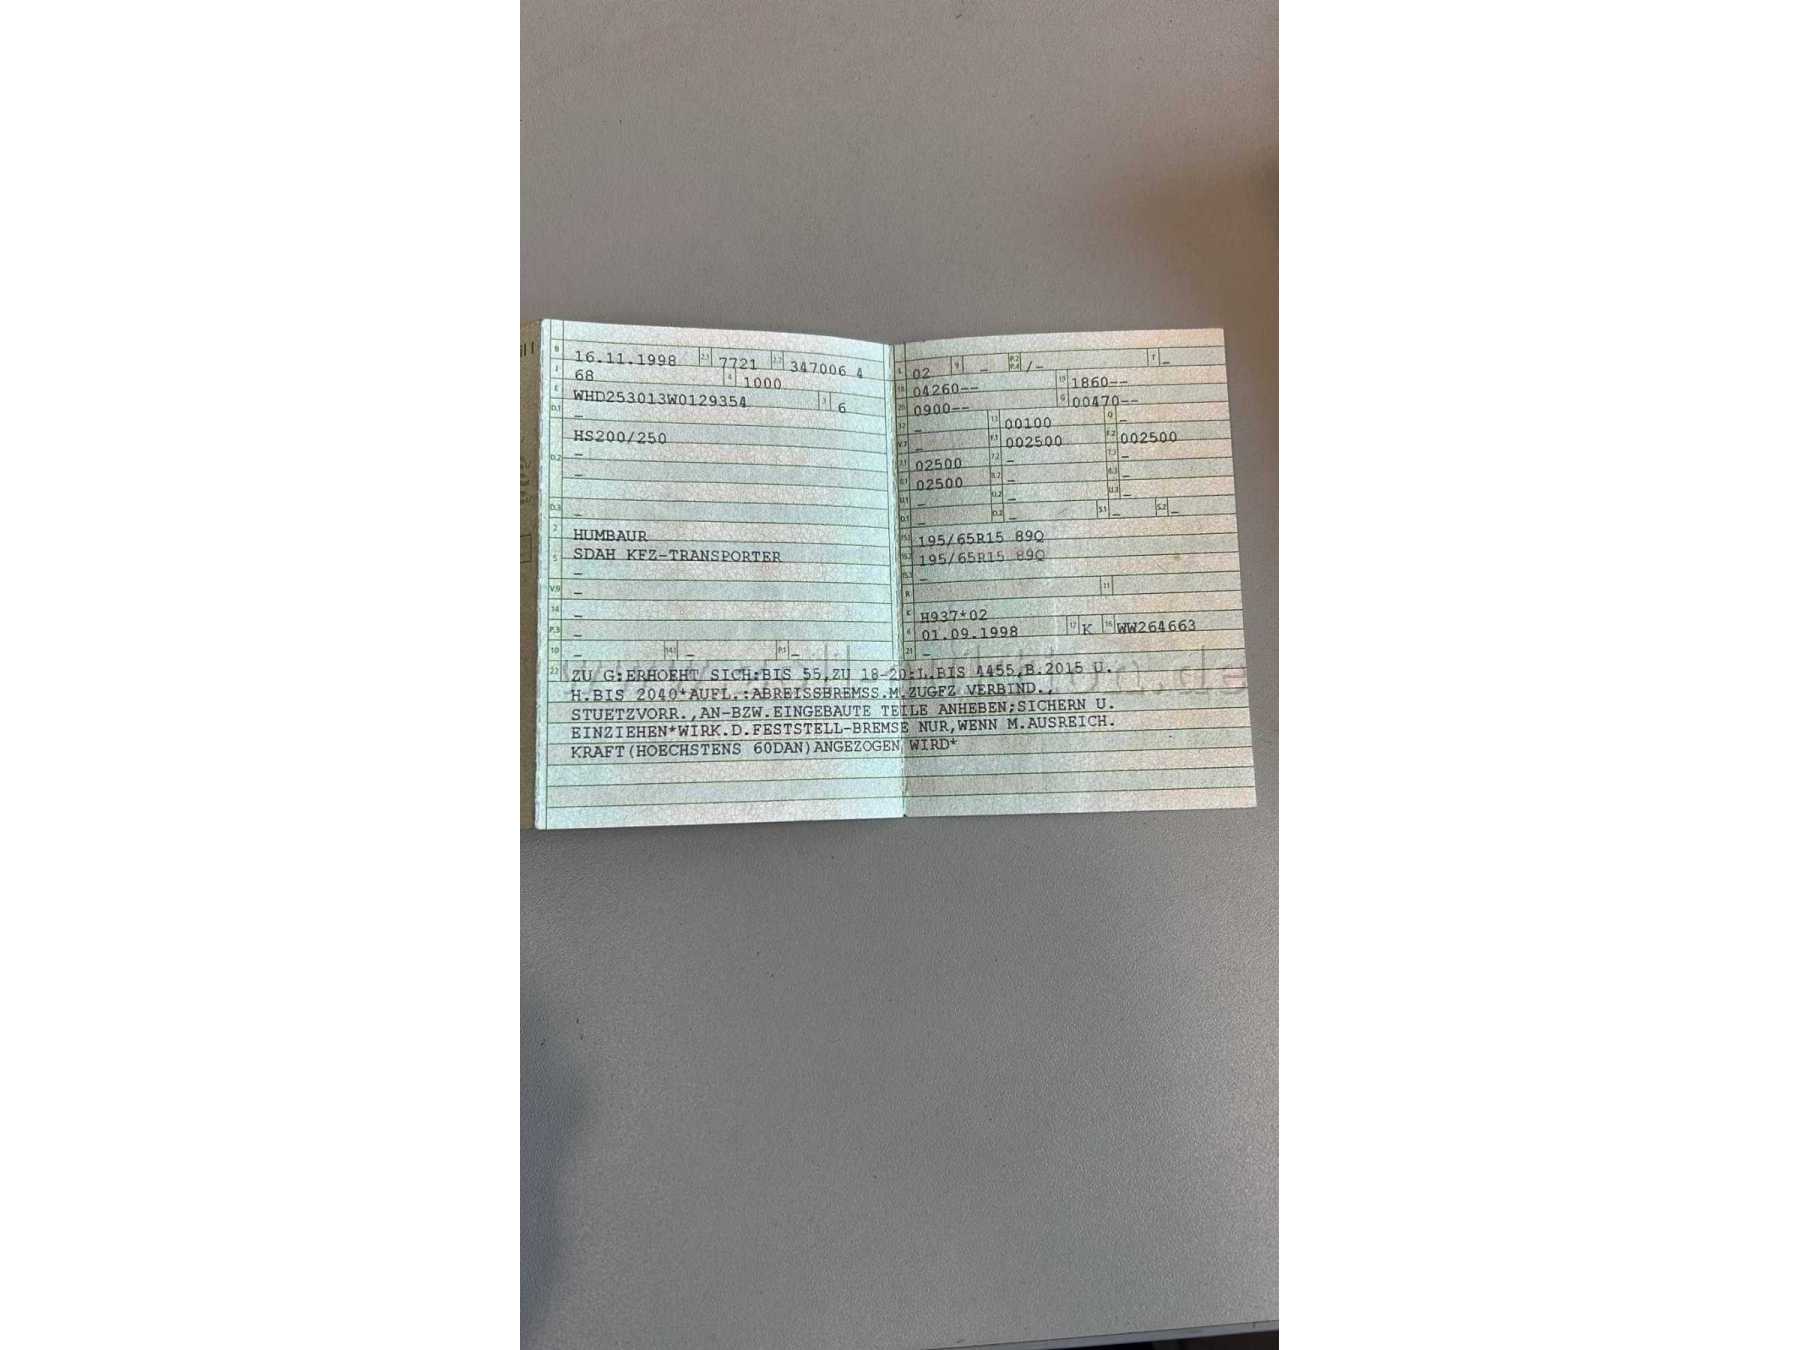 il I
B 16.11.1998 2.1 7721 2.2 347006 4
J 68 4 1000
E WHD253013W0129354 3 6
D.1 –
HS200/250
D.2 –
–
D.3 –
2 HUMBAUR
5 SDAH KFZ-TRANSPORTER
–
V.9 –
14 –
P.3 –
10 – 14.1 – P.1 –
22 ZU G:ERHOEHT SICH:BIS 55,ZU 18-20:L.BIS 4455,B.2015 U.
H.BIS 2040*AUFL.:ABREISSBREMSS.M.ZUGFZ VERBIND.,
STUETZVORR.,AN-BZW.EINGEBAUTE TEILE ANHEBEN;SICHERN U.
EINZIEHEN*WIRK.D.FESTSTELL-BREMSE NUR,WENN M.AUSREICH.
KRAFT(HOECHSTENS 60DAN)ANGEZOGEN WIRD*
L 02 9 – P.2 P.4 /– T –
18 04260-- 19 1860--
20 0900-- G 00470--
12 – 13 00100 Q –
V.7 – F.1 002500 F.2 002500
7.1 02500 7.2 – 7.3 –
8.1 02500 8.2 – 8.3 –
U.1 – U.2 – U.3 –
O.1 – O.2 – S.1 – S.2 –
15.1 195/65R15 89Q
15.2 195/65R15 89Q
15.3 –
R 11
K H937*02
6 01.09.1998 17 K 16 WW264663
21 –